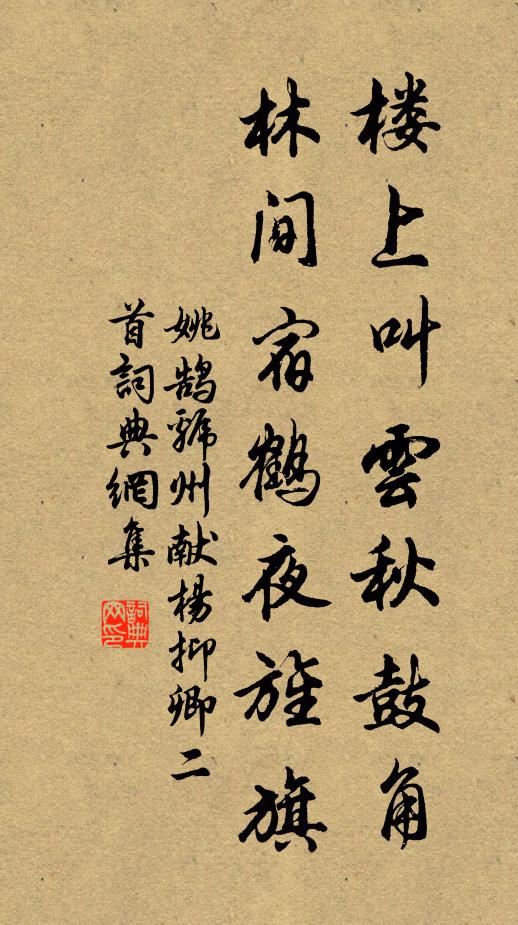 楼上叫雲秋鼓角
林间宿鶴夜旌旗
姚鹄虢州献楊抑卿二
首詞典網集
詞典
网印